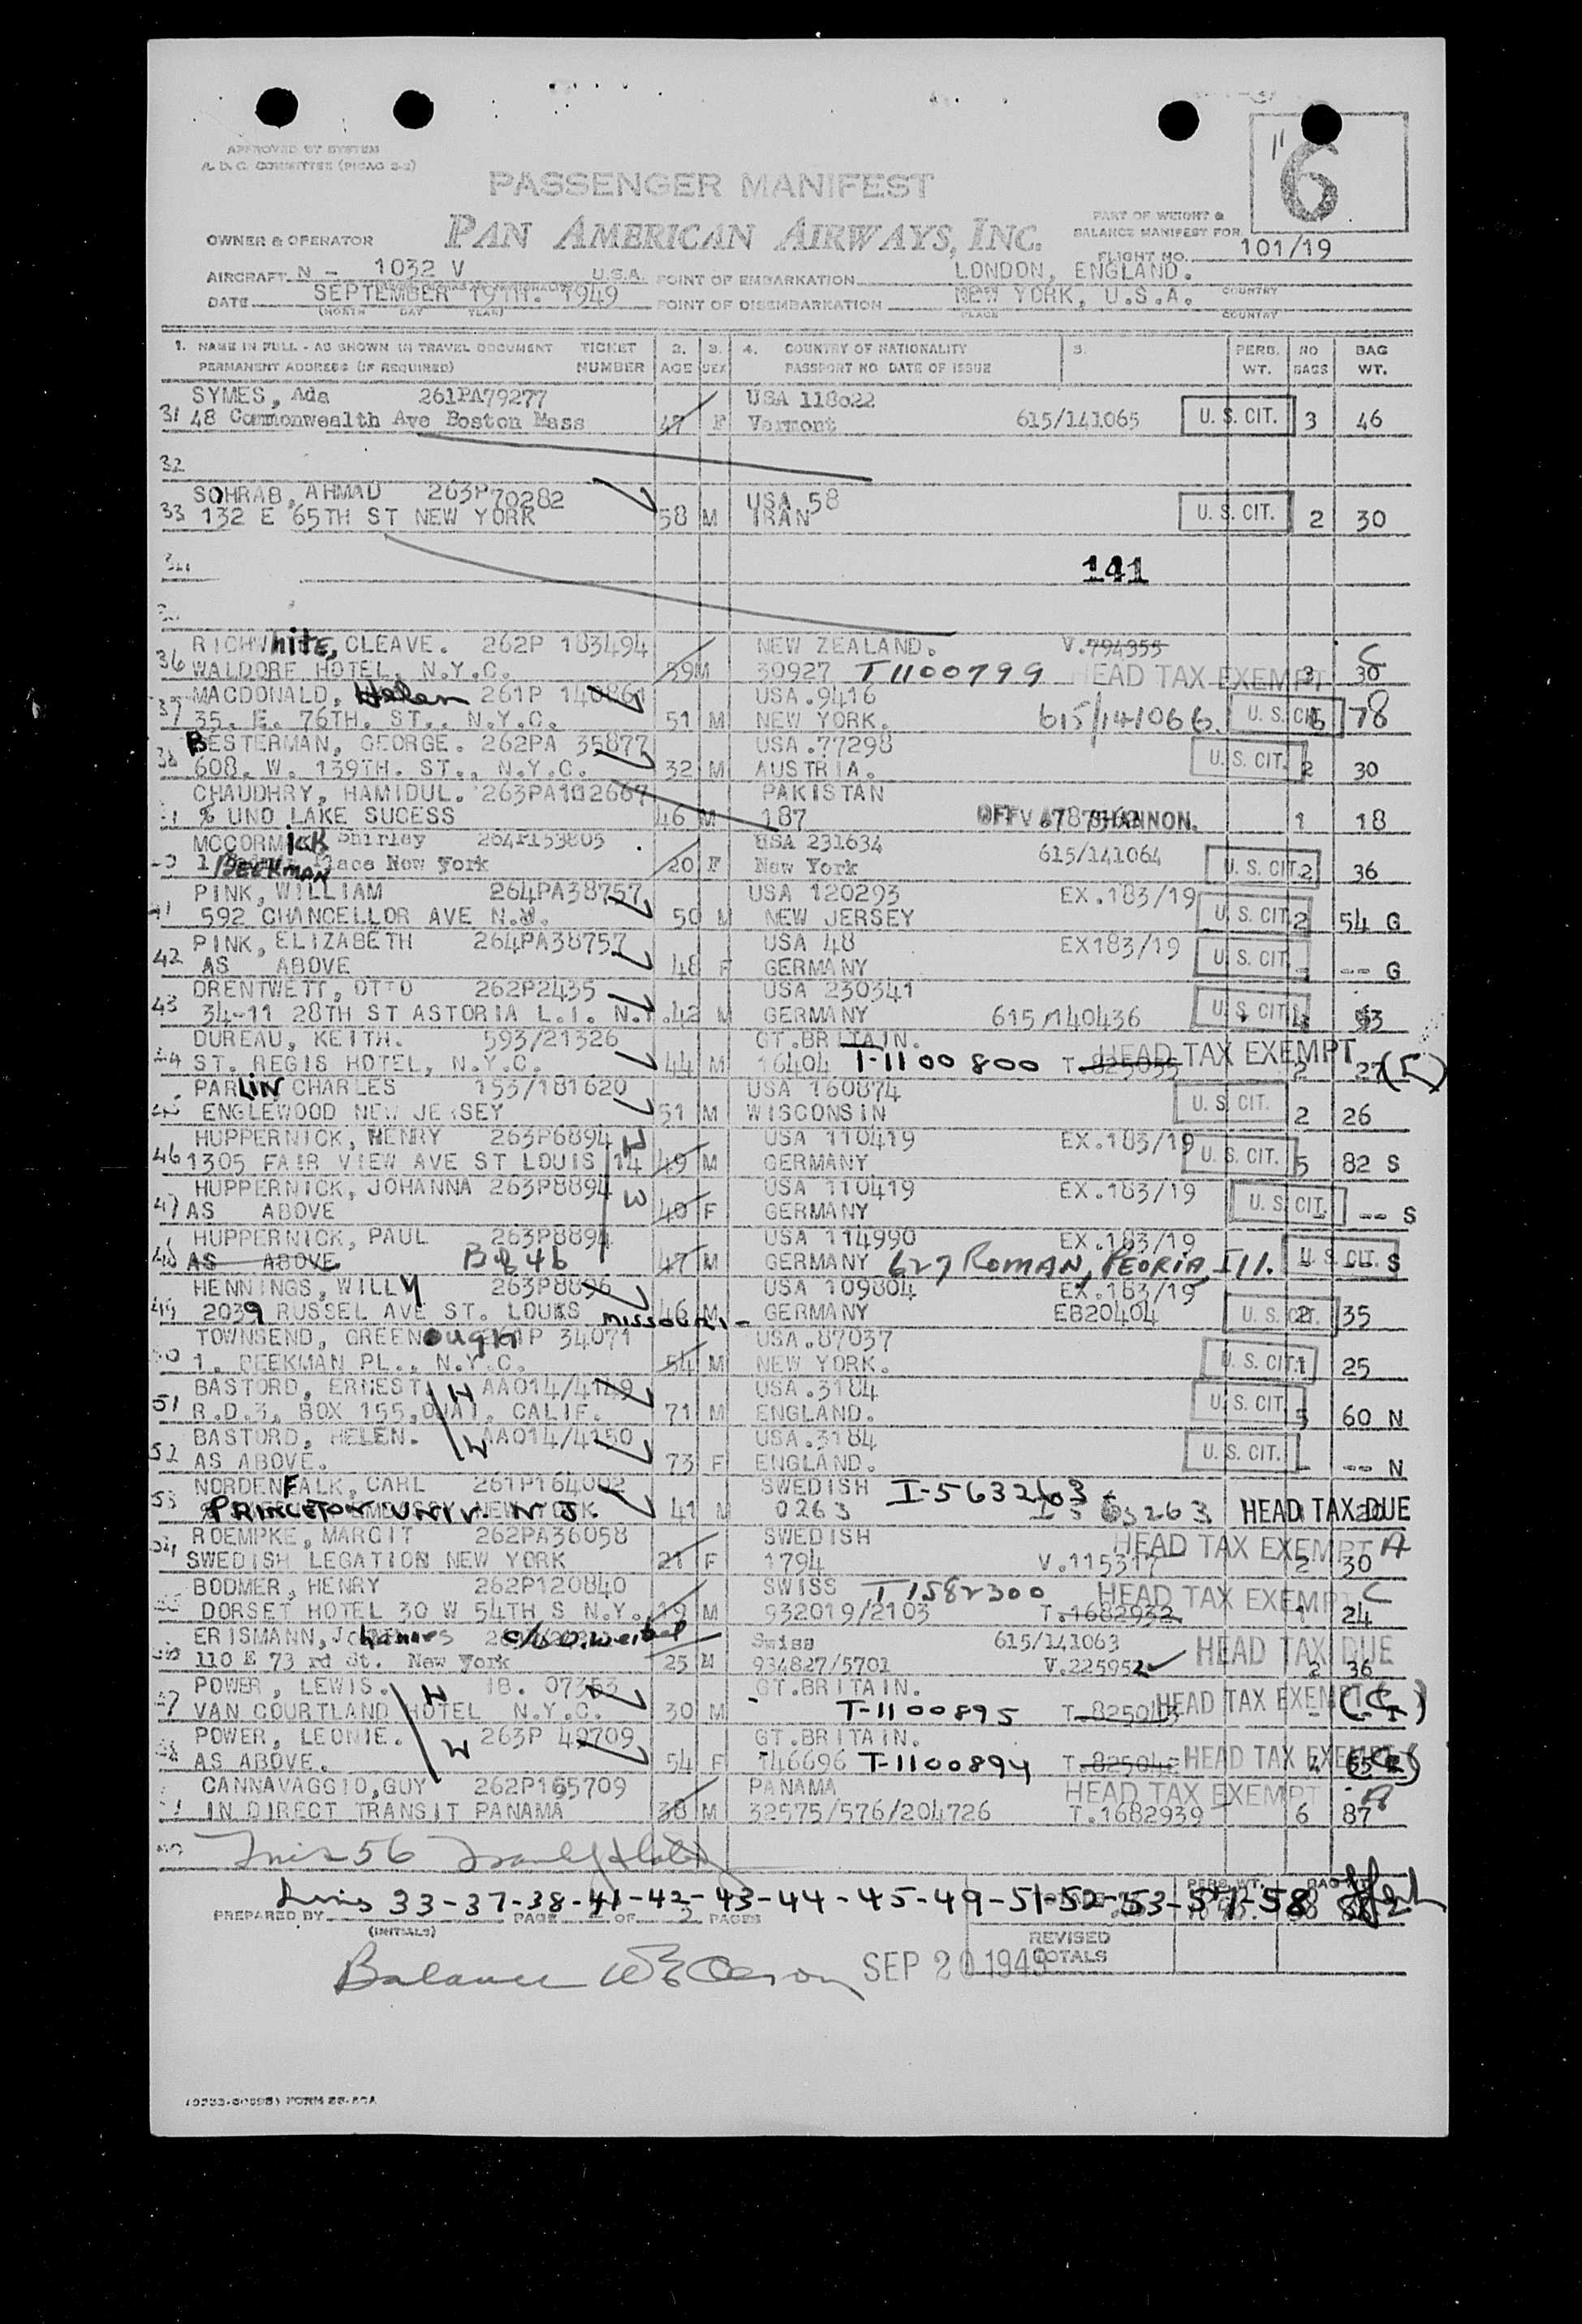 APPROVED BY SYSTEM
A. D. C. COMMITTEE (PICAO 2-2)
" 6
PASSENGER MANIFEST
PAN AMERICAN AIRWAYS, INC.
PART OF WEIGHT &
BALANCE MANIFEST FOR
OWNER & OPERATOR
FLIGHT NO. 101/19
AIRCRAFT N - 1032 V U.S.A. POINT OF EMBARKATION LONDON, ENGLAND.
DATE SEPTEMBER 19TH. 1949 POINT OF DISEMBARKATION NEW YORK, U.S.A. COUNTRY
(MONTH DAY YEAR) PLACE COUNTRY
1. NAME IN FULL - AS SHOWN IN TRAVEL DOCUMENT TICKET 2. 3. 4. COUNTRY OF NATIONALITY 5. PERS. NO BAG
PERMANENT ADDRESS (IF REQUIRED) NUMBER AGE SEX PASSPORT NO DATE OF ISSUE WT. BAGS WT.
SYMES, Ada 261PA79277 USA 118022
31 48 Commonwealth Ave Boston Mass 47 F Vermont 615/141065 U. S. CIT. 3 46
32
SOHRAB, AHMAD 263P70282 USA 58
33 132 E 65TH ST NEW YORK 58 M IRAN U. S. CIT. 2 30
34 141
RICHWhite, CLEAVE. 262P 183494 NEW ZEALAND. V.794955 C
36 WALDORF HOTEL, N.Y.C. 59 M 30927 T1100799 HEAD TAX EXEMPT 3 30
MACDONALD, Helen 261P 140861 USA.9416
37 35. E. 76TH. ST., N.Y.C. 51 M NEW YORK. 615/141066 U. S. CIT. 78
BESTERMAN, GEORGE. 262PA 35877 USA.77298
38 608. W. 139TH. ST., N.Y.C. 32 M AUSTRIA. U. S. CIT. 2 30
CHAUDHRY, HAMIDUL. 263PA102667 PAKISTAN
% UNO LAKE SUCESS 46 M 187 OFF SHANNON. 1 18
MCCORMICK Shirley 264P153805 USA 231634
1 BEEKMAN Place New York 20 F New York 615/141064 U. S. CIT. 2 36
PINK, WILLIAM 264PA38757 USA 120293 EX.183/19
41 592 CHANCELLOR AVE N.J. 50 M NEW JERSEY U. S. CIT. 2 54 G
PINK, ELIZABETH 264PA38757 USA 48 EX183/19
42 AS ABOVE 48 F GERMANY U. S. CIT. - -- G
DRENTWETT, OTTO 262P2435 USA 230341
43 34-11 28TH ST ASTORIA L.I. N.Y. 42 M GERMANY 615/140436 U. S. CIT. 53
DUREAU, KEITH. 593/21326 GT.BRITAIN.
44 ST. REGIS HOTEL, N.Y.C. 44 M 16404 T-1100800 T.825055 HEAD TAX EXEMPT 2 27
PARLIN CHARLES 153/181620 USA 160874
45 ENGLEWOOD NEW JERSEY 51 M WISCONSIN U. S. CIT. 2 26
HUPPERNICK, HENRY 263P6894 W USA 110419 EX.183/19
46 1305 FAIR VIEW AVE ST LOUIS 14 49 M GERMANY U. S. CIT. 5 82 S
HUPPERNICK, JOHANNA 263P8894 W USA 110419 EX.183/19
47 AS ABOVE 40 F GERMANY U. S. CIT. -- S
HUPPERNICK, PAUL 263P8894 USA 114990 EX.183/19
48 AS ABOVE B of 46 47 M GERMANY 627 ROMAN, PEORIA, Ill. U. S. CIT. -- S
HENNINGS, WILLY 263P8896 USA 109804 EX.183/19
49 2039 RUSSEL AVE ST. LOUIS MISSOURI- 46 M GERMANY EB20404 U. S. CIT. 2 35
TOWNSEND, GREENough 34071 USA.87037
50 1. BEEKMAN PL., N.Y.C. 54 M NEW YORK. U. S. CIT. 1 25
BASTORD, ERNEST. H AA014/4149 USA.3184
51 R.D.3, BOX 155,OJAI, CALIF. 71 M ENGLAND. U. S. CIT. 5 60 N
BASTORD, HELEN. W AA014/4150 USA.3184
52 AS ABOVE. 73 F ENGLAND. U. S. CIT. - -- N
NORDENFALK, CARL 261P164002 SWEDISH I-563263
53 PRINCETON UNIV. N J. 41 M 0263 HEAD TAX DUE
ROEMPKE, MARGIT 262PA36058 SWEDISH
54 SWEDISH LEGATION NEW YORK 21 F 1794 V.115317 HEAD TAX EXEMPT A 2 30
BODMER, HENRY 262P120840 SWISS T1582300 HEAD TAX EXEMPT C
DORSET HOTEL 30 W 54TH S N.Y. 19 M 932019/2103 T.1682932 1 24
ERISMANN, Johannes c/o O. Weibel Swiss 615/141063
110 E 73 rd St. New York 25 M 934827/5701 V.225952 HEAD TAX DUE 2 36
POWER, LEWIS. H 18. 07353 GT.BRITAIN.
57 VAN COURTLAND HOTEL N.Y.C. 30 M T-1100895 T.825043 HEAD TAX EXEMPT
POWER, LEONIE. W 263P 49709 GT.BRITAIN.
58 AS ABOVE. 54 F 146696 T-1100894 T.825042 HEAD TAX EXEMPT
CANNAVAGGIO,GUY 262P165709 PANAMA HEAD TAX EXEMPT A
IN DIRECT TRANSIT PANAMA 38 M 32575/576/204726 T.1682939 6 87
60
Lines 33-37-38-41-42-43-44-45-49-51-52-53-57-58
PREPARED BY PAGE OF 3 PAGES PERS. WT. BAG
(INITIALS)
REVISED
TOTALS
Balance SEP 20 1949